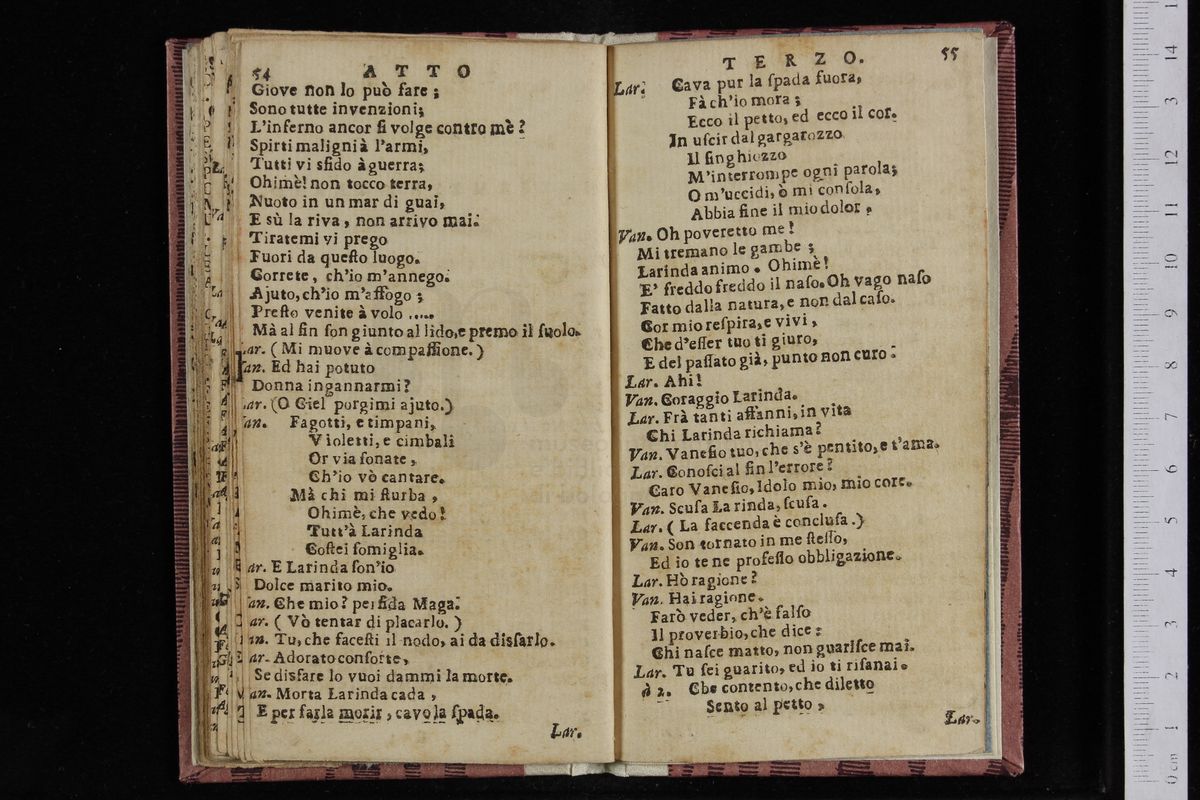 54 ATTO
Giove non lo può fare ;
Sono tutte invenzioni;
L'inferno ancor ſi volge contro mè ?
Spirti maligni à l'armi,
Tutti vi sfido à guerra;
Ohimè! non tocco terra,
Nuoto in un mar di guai,
E sù la riva , non arrivo mai.
Tiratemi vi prego
Fuori da queſto luogo.
Correte , ch'io m'annego.
Ajuto, ch'io m'affogo ;
Preſto venite à volo .....
Mà al fin ſon giunto al lido, e premo il ſuolo.
ar. ( Mi muove à compaſſione. )
an. Ed hai potuto
Donna ingannarmi ?
ar. (O Ciel porgimi ajuto.)
an. Fagotti, e timpani,
Violetti, e cimbali
Or via ſonate ,
Ch'io vò cantare.
Mà chi mi ſturba ,
Ohimè, che vedo !
Tutt'à Larinda
Coſtei ſomiglia.
ar. E Larinda ſon'io
Dolce marito mio.
an. Che mio ? perfida Maga.
ar. ( Vò tentar di placarlo. )
an. Tu, che faceſti il nodo, ai da disfarlo.
ar. Adorato conſorte ,
Se disfare lo vuoi dammi la morte.
an. Morta Larinda cada ,
E per farla morir , cavo la ſpada.
Lar.
TERZO. 55
Lar. Cava pur la ſpada fuora,
Fà ch'io mora ;
Ecco il petto, ed ecco il cor.
In uſcir dal gargarozzo
Il ſinghiozzo
M'interrompe ogni parola;
O m'uccidi, ò mi conſola,
Abbia fine il mio dolor .
Van. Oh poveretto me !
Mi tremano le gambe ;
Larinda animo . Ohimè !
E' freddo freddo il naſo. Oh vago naſo
Fatto dalla natura, e non dal caſo.
Cor mio reſpira, e vivi ,
Che d'eſſer tuo ti giuro,
E del paſſato già, punto non curo .
Lar. Ahi !
Van. Coraggio Larinda.
Lar. Frà tanti affanni, in vita
Chi Larinda richiama ?
Van. Vaneſio tuo, che s'è pentito, e t'ama.
Lar. Conoſci al fin l'errore ?
Caro Vaneſio, Idolo mio, mio core.
Van. Scuſa Larinda, ſcuſa .
Lar. ( La faccenda è concluſa .)
Van. Son tornato in me ſteſſo,
Ed io te ne profeſſo obbligazione.
Lar. Hò ragione ?
Van. Hai ragione.
Farò veder, ch'è falſo
Il proverbio, che dice :
Chi naſce matto, non guariſce mai.
Lar. Tu ſei guarito, ed io ti riſanai.
à 2. Che contento, che diletto
Sento al petto ,
Lar.